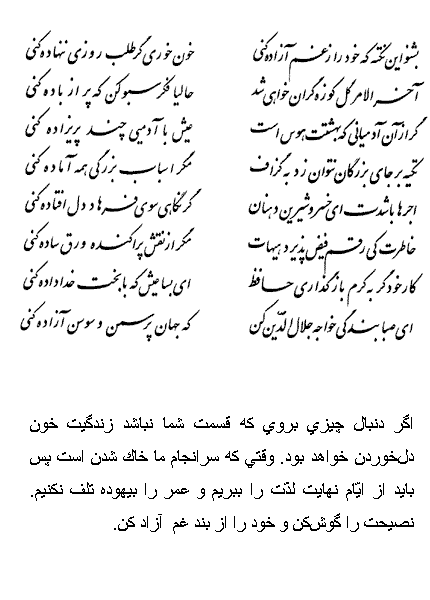 بشنو این نکته که خود را ز غم آزاده کنی خون خوری گر طلب روزی ننهاده کنی
آخر الامر گل کوزه گران خواهی شد حالیا فکر سبو کن که پر از باده کنی
گر از آن آدمیانی که بهشتت هوس است عیش با آدمیی چند پریزاده کنی
تکیه بر جای بزرگان نتوان زد به گزاف مگر اسباب بزرگی همه آماده کنی
اجرها باشدت ای خسرو شیرین دهنان گر نگاهی سوی فرهاد دل افتاده کنی
خاطرت کی رقم فیض پذیرد هیهات مگر از نقش پراکنده ورق ساده کنی
کار خود گر به کرم بازگذاری حافظ ای بسا عیش که با بخت خداداده کنی
ای صبا بندگی خواجه جلال الدّین کن که جهان پر سمن و سوسن آزاده کنی
اگر دنبال چيزي بروي كه قسمت شما نباشد زندگيت خون
دل‌خوردن خواهد بود. وقتي كه سرانجام ما خاك شدن است پس
بايد از ايّام نهايت لذّت را ببريم و عمر را بيهوده تلف نكنيم.
نصيحت را گوش‌كن و خود را از بند غم آزاد كن.